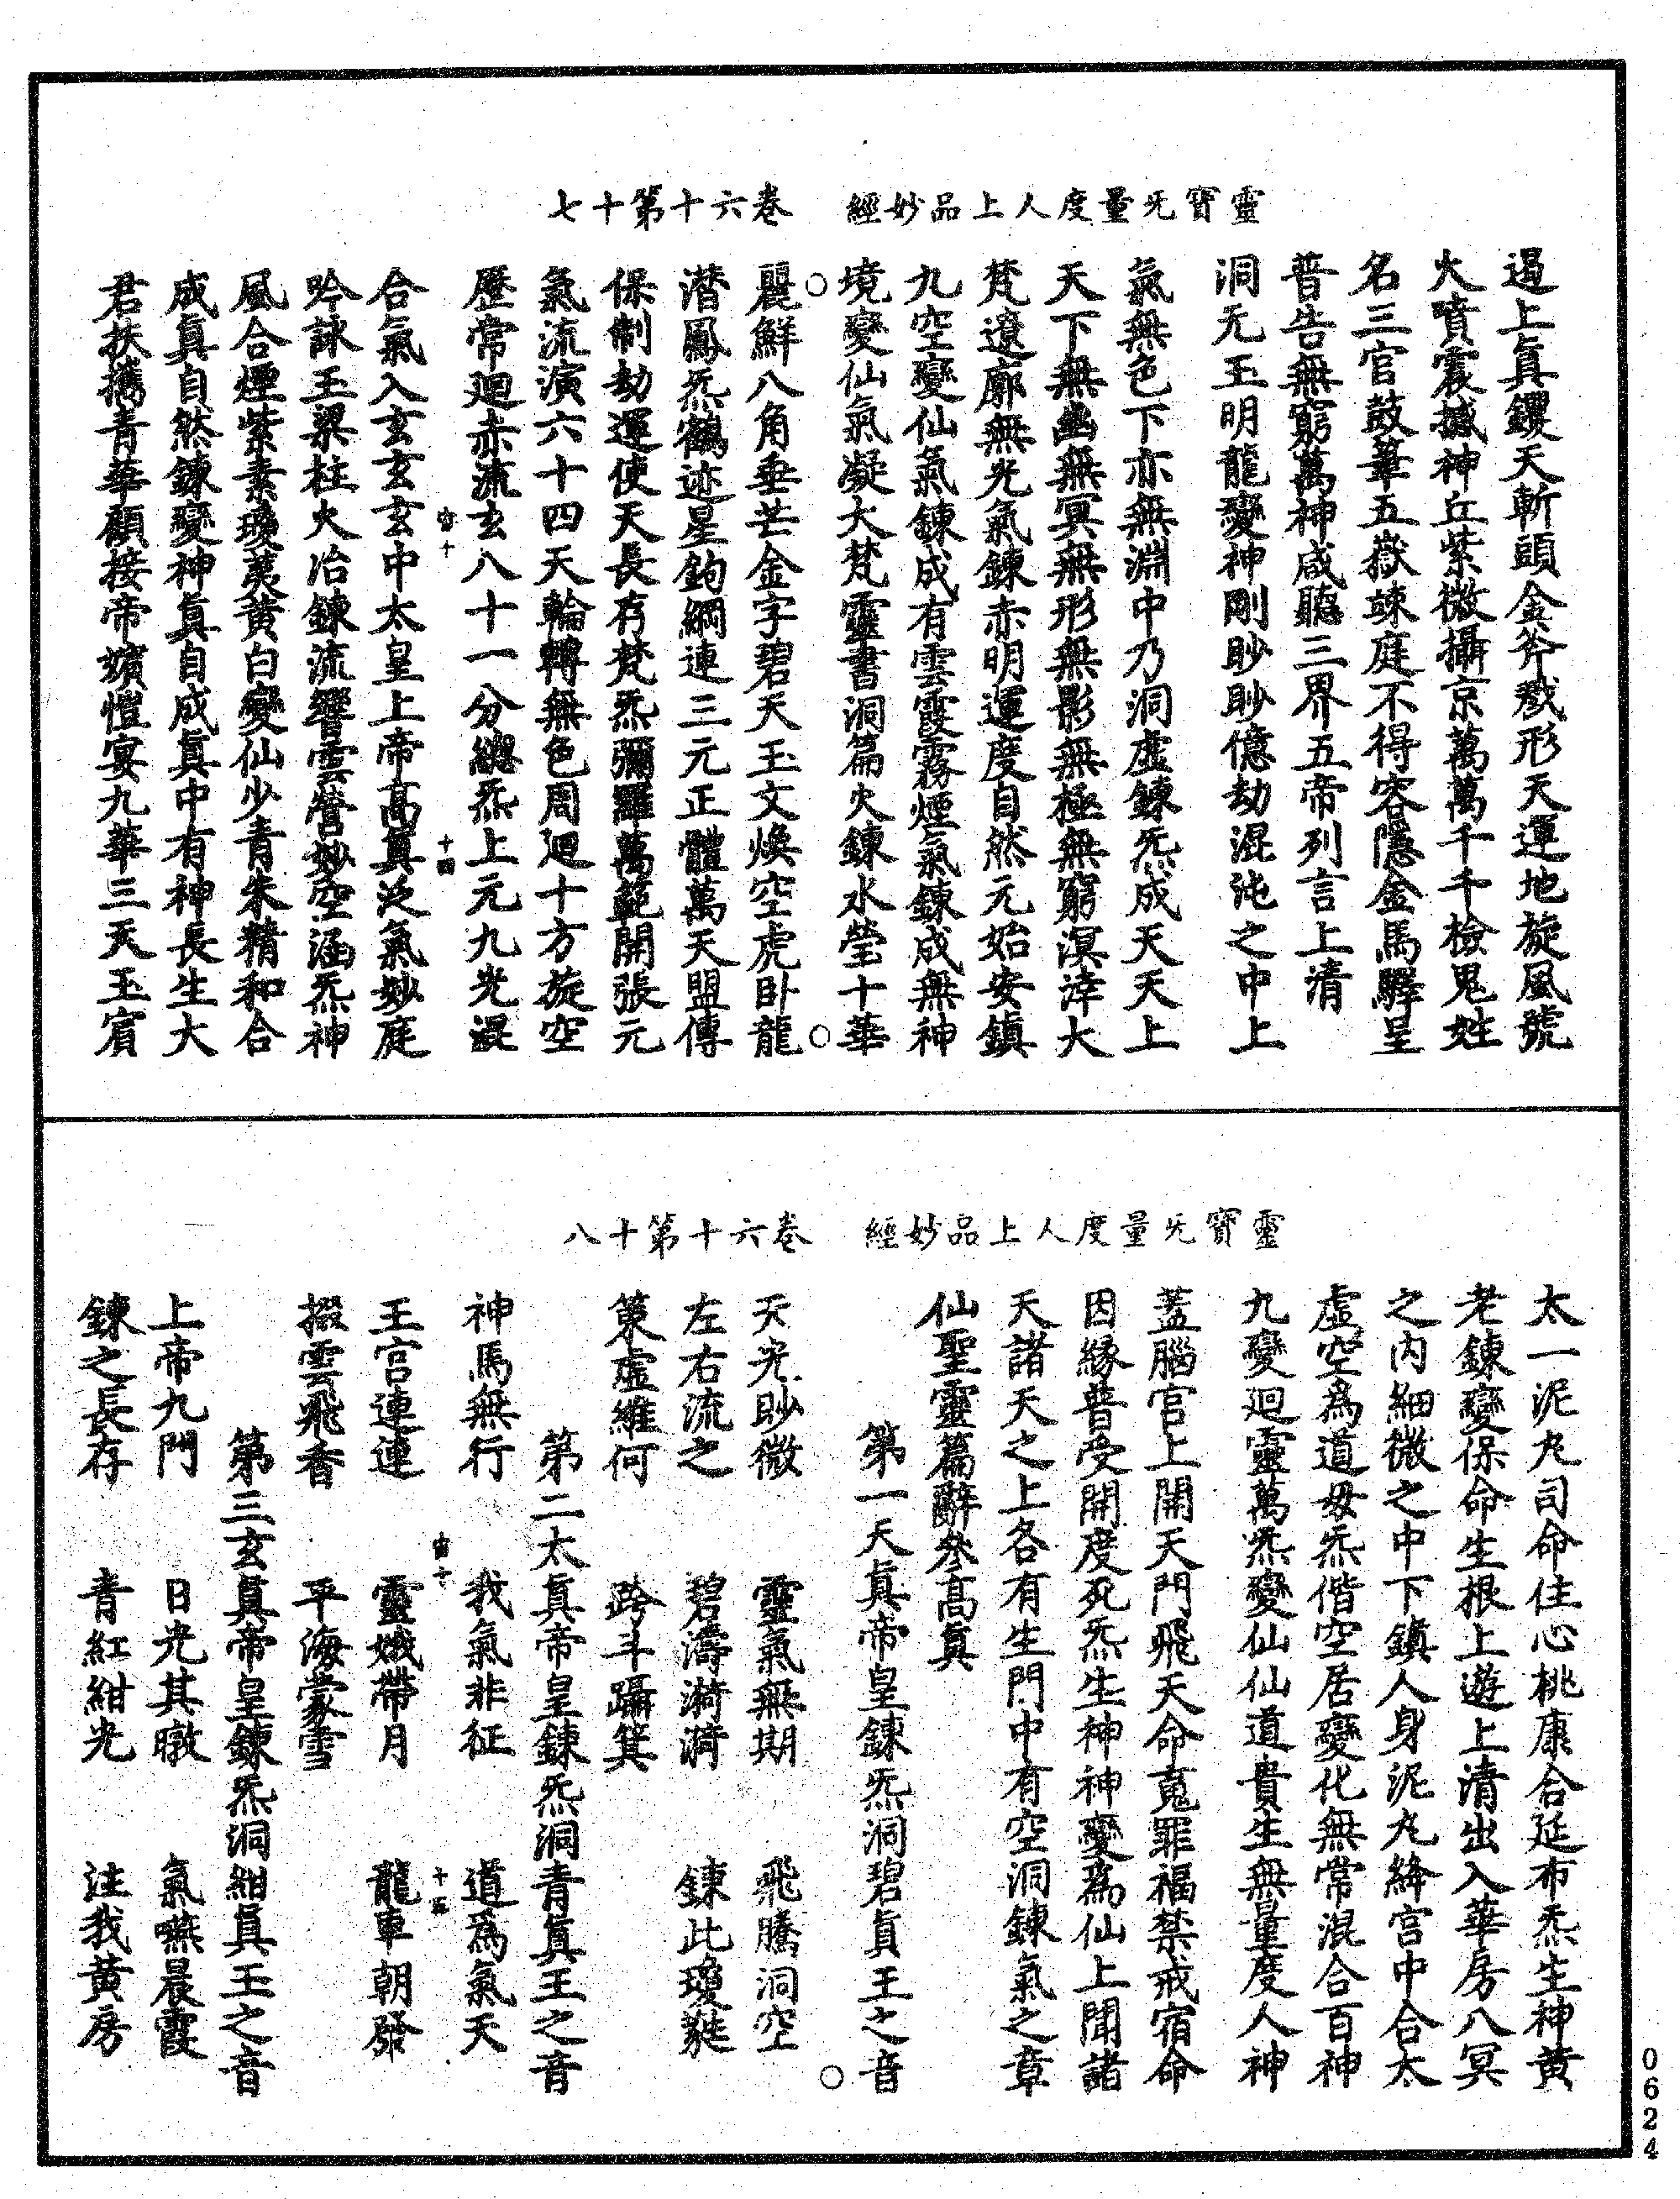 靈寶旡量度人上品妙經　卷六十第十七
遏上真钁天斬頭金斧戮形天運地旋風號
火噴震撼神丘紫微攝京萬萬千千檢鬼姓
名三官鼓筆五嶽竦庭不得容隱金馬驛呈
普告無窮萬神咸聽三界五帝列言上清
洞旡玉明龍變神剛眇眇億劫混沌之中上
氣無色下亦無淵中乃洞虛鍊炁成天天上
天下無幽無冥無形無影無極無窮溟涬大
梵遼廓無光氣鍊赤明運度自然元始安鎮
九空變仙氣鍊成有雲霞霧煙氣鍊成無神
境變仙氣凝大梵靈書洞篇火鍊水瑩十華
麗鮮八角垂芒金字碧天玉文煥空虎卧龍
潛鳳炁鶴迹星鉤綱連三元正體萬天盟傳
保制劫運使天長存梵炁彌羅萬範開張元
氣流演六十四天輪轉無色周迴十方旋空
歷常迴赤流玄八十一分總炁上元九光混
宙十　十四
合氣入玄玄玄中太皇上帝高真泛氣妙庭
吟詠玉梁柱火冶鍊流響雲營妙空涵炁神
風合煙紫素瓊蕤黃白變仙少青朱精和合
成真自然鍊變神真自成真中有神長生大
君扶攜青華顧接帝嬪愷宴九華三天玉賓
靈寶旡量度人上品妙經　卷六十第十八
太一泥丸司命住心桃康合延布炁生神黃
老鍊變保命生根上遊上清出入華房八冥
之內細微之中下鎮人身泥丸絳宫中合太
虛空為道毋炁偕空居變化無常混合百神
九變迴靈萬炁變仙仙道貴生無量度人神
蓋腦宫上開天門飛天命䰟罪福禁戒宿命
因緣普受開度死炁生神神變為仙上聞諸
天諸天之上各有生門中有空洞鍊氣之章
仙聖靈篇辭參高真
第一天真帝皇鍊炁洞碧真王之音
天光眇微　靈氣無期　飛騰洞空
左右流之　碧濤漪漪　鍊此瓊蕤
策虛維何　跨斗躡箕
第二太真帝皇鍊炁洞青真王之音
神馬無行　我氣非征　道為氣天
宙十　十五
王宫連連　靈娥帶月　龍車朝發
掇雲飛香　平海蒙雪
第三玄真帝皇鍊炁洞紺真王之音
上帝九門　日光其暾　氣嚥晨霞
鍊之長存　青紅紺光　注我黃房
0624